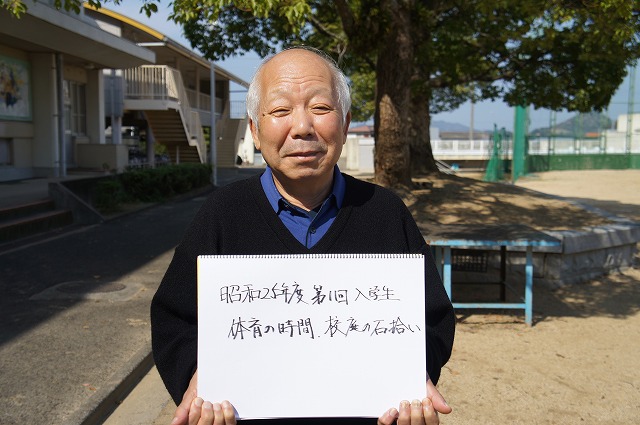 昭和25年度第1回入学生
体育の時間、校庭の石拾い